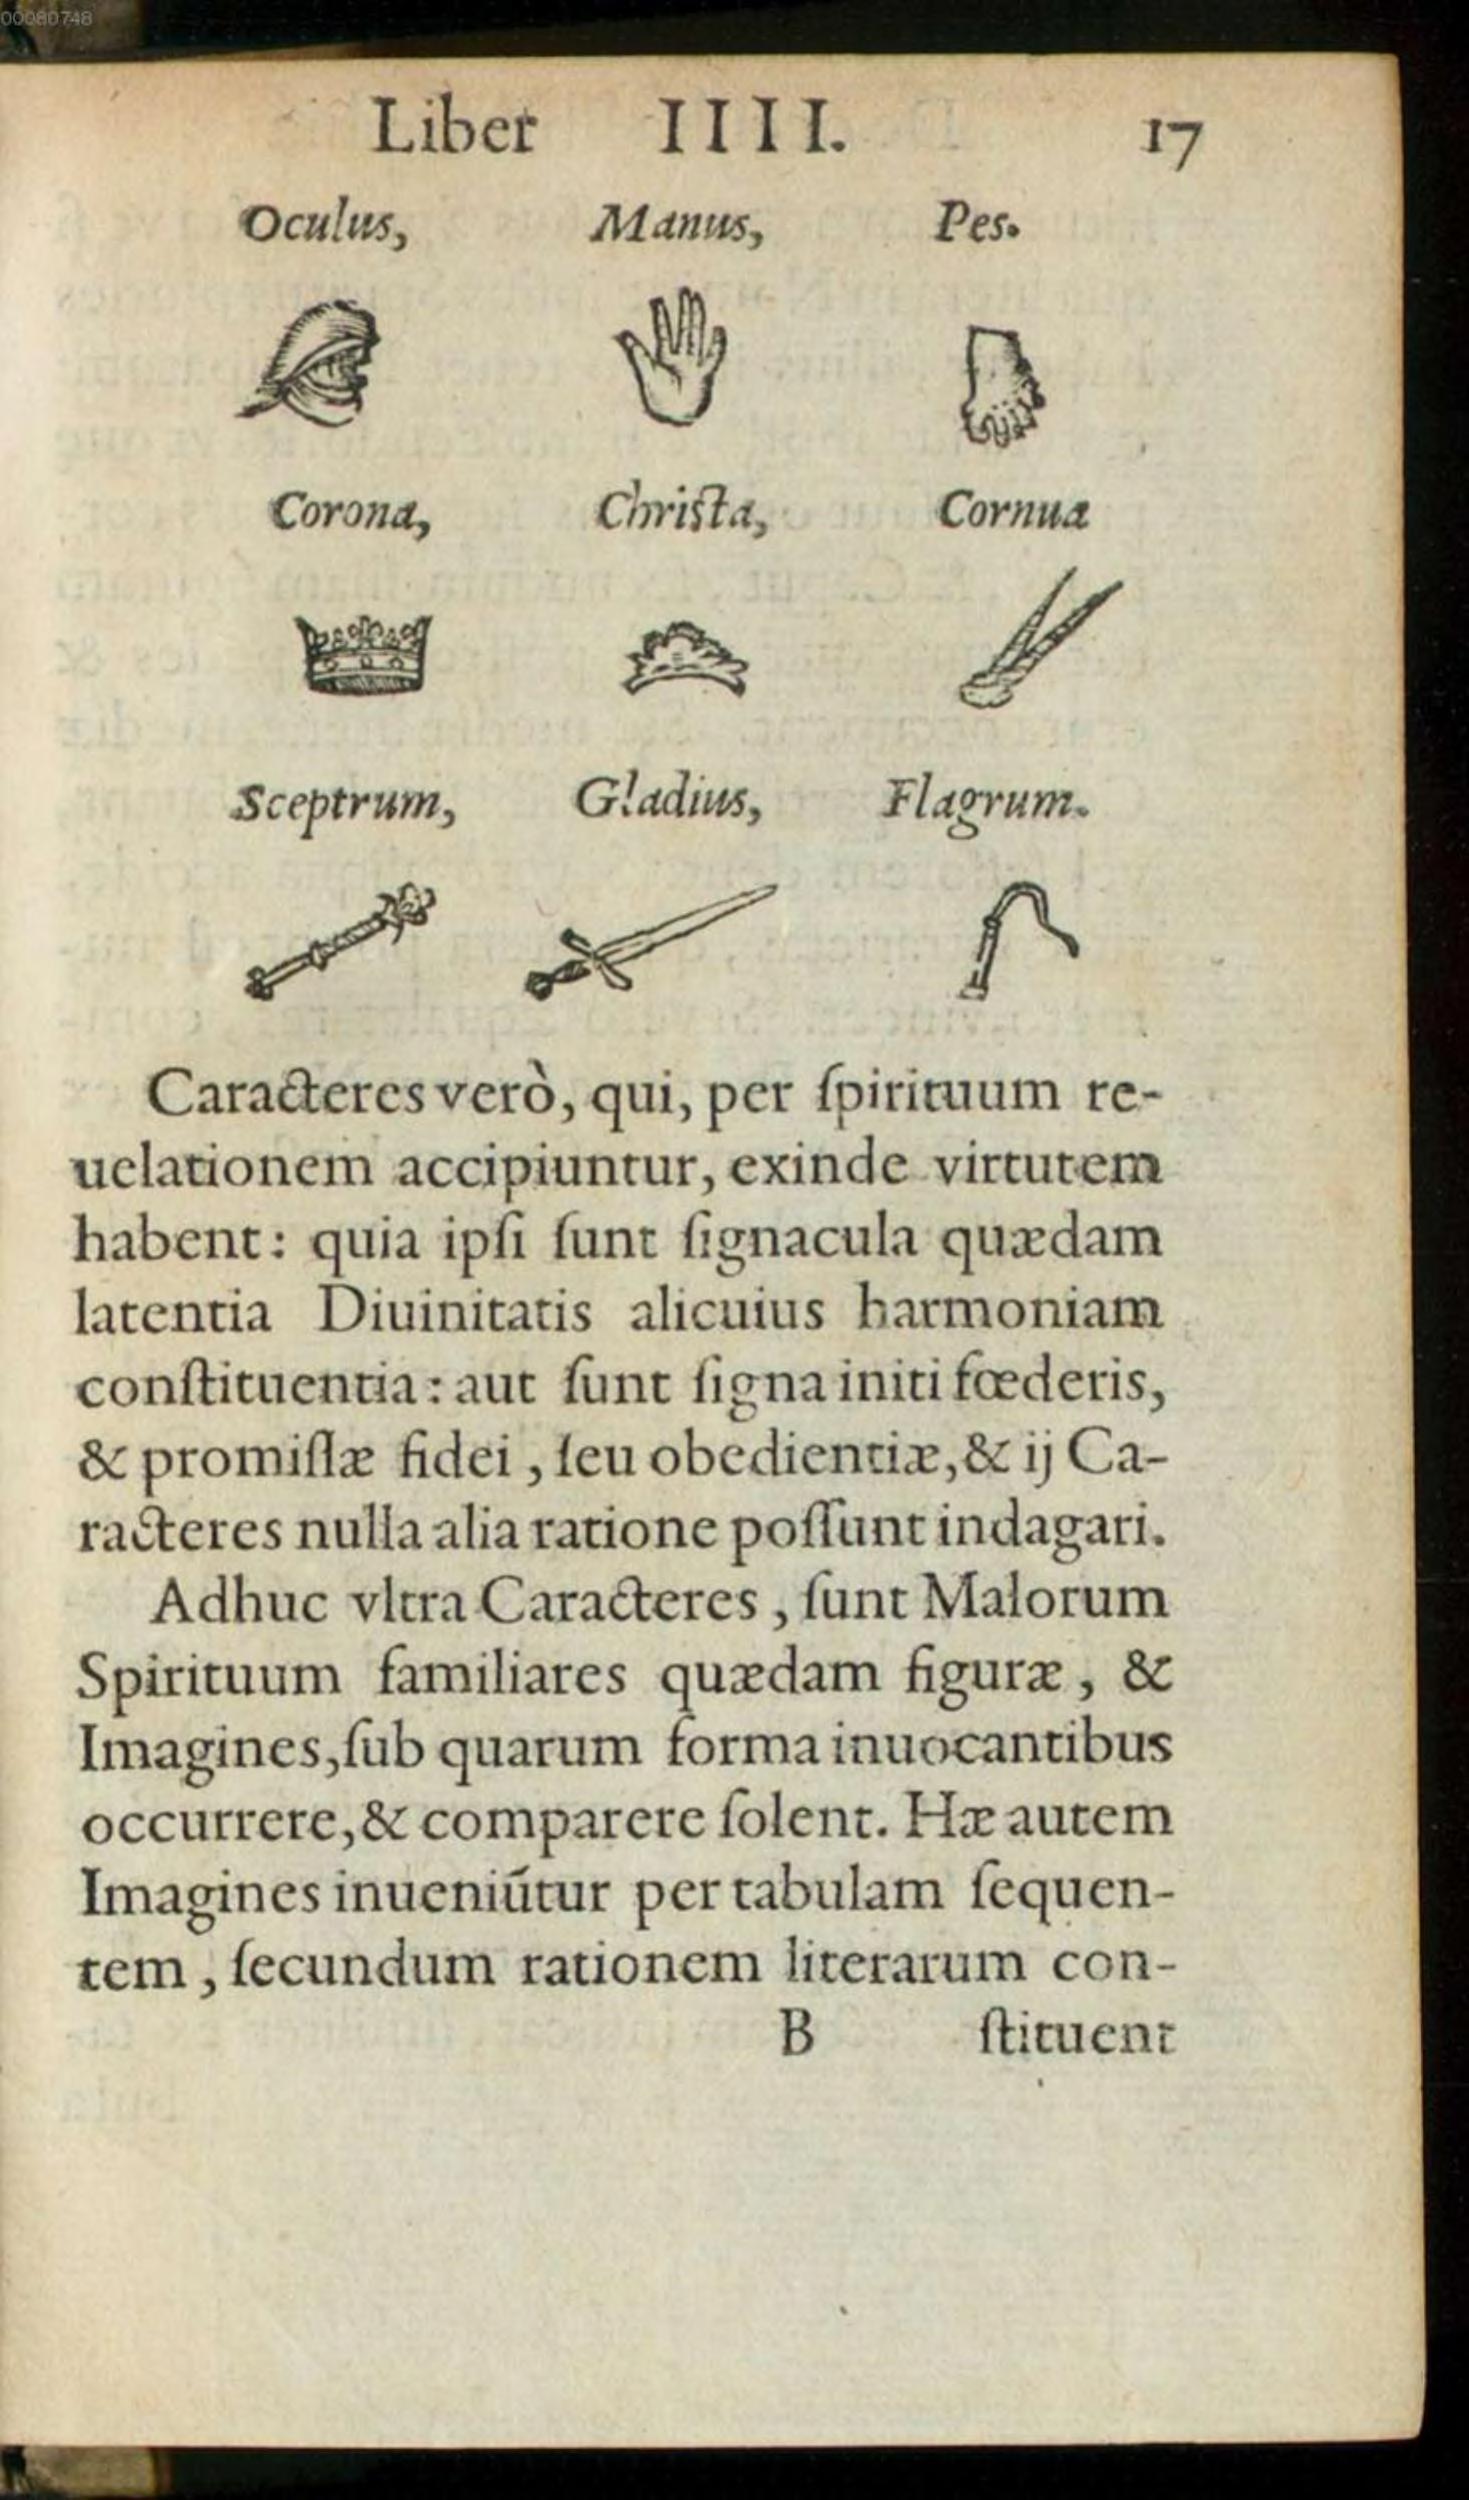 00080748
Liber IIII. 17
Oculus, Manus, Pes.
Corona, Christa, Cornua
Sceptrum, Gladius, Flagrum.
Caracteres verò, qui, per ſpirituum re-
uelationem accipiuntur, exinde virtutem
habent: quia ipſi ſunt ſignacula quædam
latentia Diuinitatis alicuius harmoniam
conſtituentia: aut ſunt ſigna initi fœderis,
& promiſſæ fidei, ſeu obedientiæ, & ij Ca-
racteres nulla alia ratione poſſunt indagari.
Adhuc vltra Caracteres, ſunt Malorum
Spirituum familiares quædam figuræ, &
Imagines, ſub quarum forma inuocantibus
occurrere, & comparere ſolent. Hæ autem
Imagines inueniūtur per tabulam ſequen-
tem, ſecundum rationem literarum con-
B ſtituent